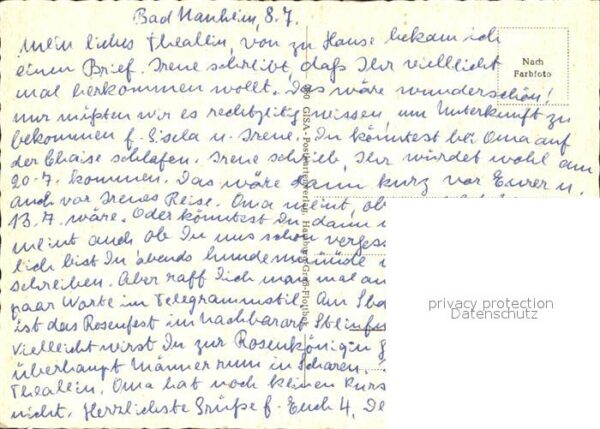 Bad Nauheim, 8.7.
Mein liebes Theallin, von zu Hause bekam ich
einen Brief. Irene schreibt, daß Ihr vielleicht
mal herkommen wollt. Das wäre wunderschön!
nur müßten wir es rechtzeitig wissen, um Unterkunft zu
bekommen f. Gisela u. Irene. Du könntest bei Oma auf
der Chaise schlafen. Irene schrieb, Ihr würdet wohl am
20.7. kommen. Das wäre dann kurz vor Eurer u.
auch vor Irenes Reise. Oma meint, ob
13.7. wäre. Oder könntest Du dann
meint auch ob Du uns schon verges
lich bist Du abends hundemüüüde
schreiben. Aber raff Dich man mal
paar Worte im Telegrammstil. Am
ist das Rosenfest im Nachbarort
Vielleicht wirst Du zur Rosenkönigin
überhaupt Männer rum in Scharen.
Theallin. Oma hat noch keinen Kurs
nicht. Herzlichste Grüße f. Euch 4, De
Nach
Farbfoto
GISA-Postkartenverlag, Hamburg Groß-Flottbek
privacy protection
Datenschutz